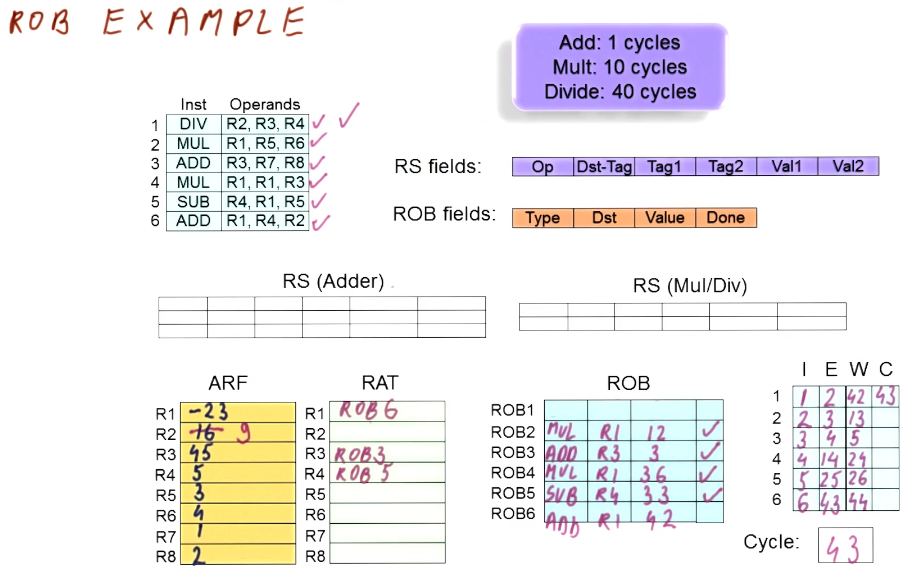 ROB EXAMPLE
Add: 1 cycles
Mult: 10 cycles
Divide: 40 cycles
Inst Operands
1 DIV R2, R3, R4
2 MUL R1, R5, R6
3 ADD R3, R7, R8
4 MUL R1, R1, R3
5 SUB R4, R1, R5
6 ADD R1, R4, R2
RS fields: Op Dst-Tag Tag1 Tag2 Val1 Val2
ROB fields: Type Dst Value Done
RS (Adder)
RS (Mul/Div)
ARF
R1 -23
R2 16 9
R3 45
R4 5
R5 3
R6 4
R7 1
R8 2
RAT
R1 ROB6
R2
R3 ROB3
R4 ROB5
R5
R6
R7
R8
ROB
ROB1
ROB2 MUL R1 12
ROB3 ADD R3 3
ROB4 MUL R1 36
ROB5 SUB R4 33
ROB6 ADD R1 42
I E W C
1 1 2 42 43
2 2 3 13
3 3 4 5
4 4 14 24
5 5 25 26
6 6 43 44
Cycle: 43